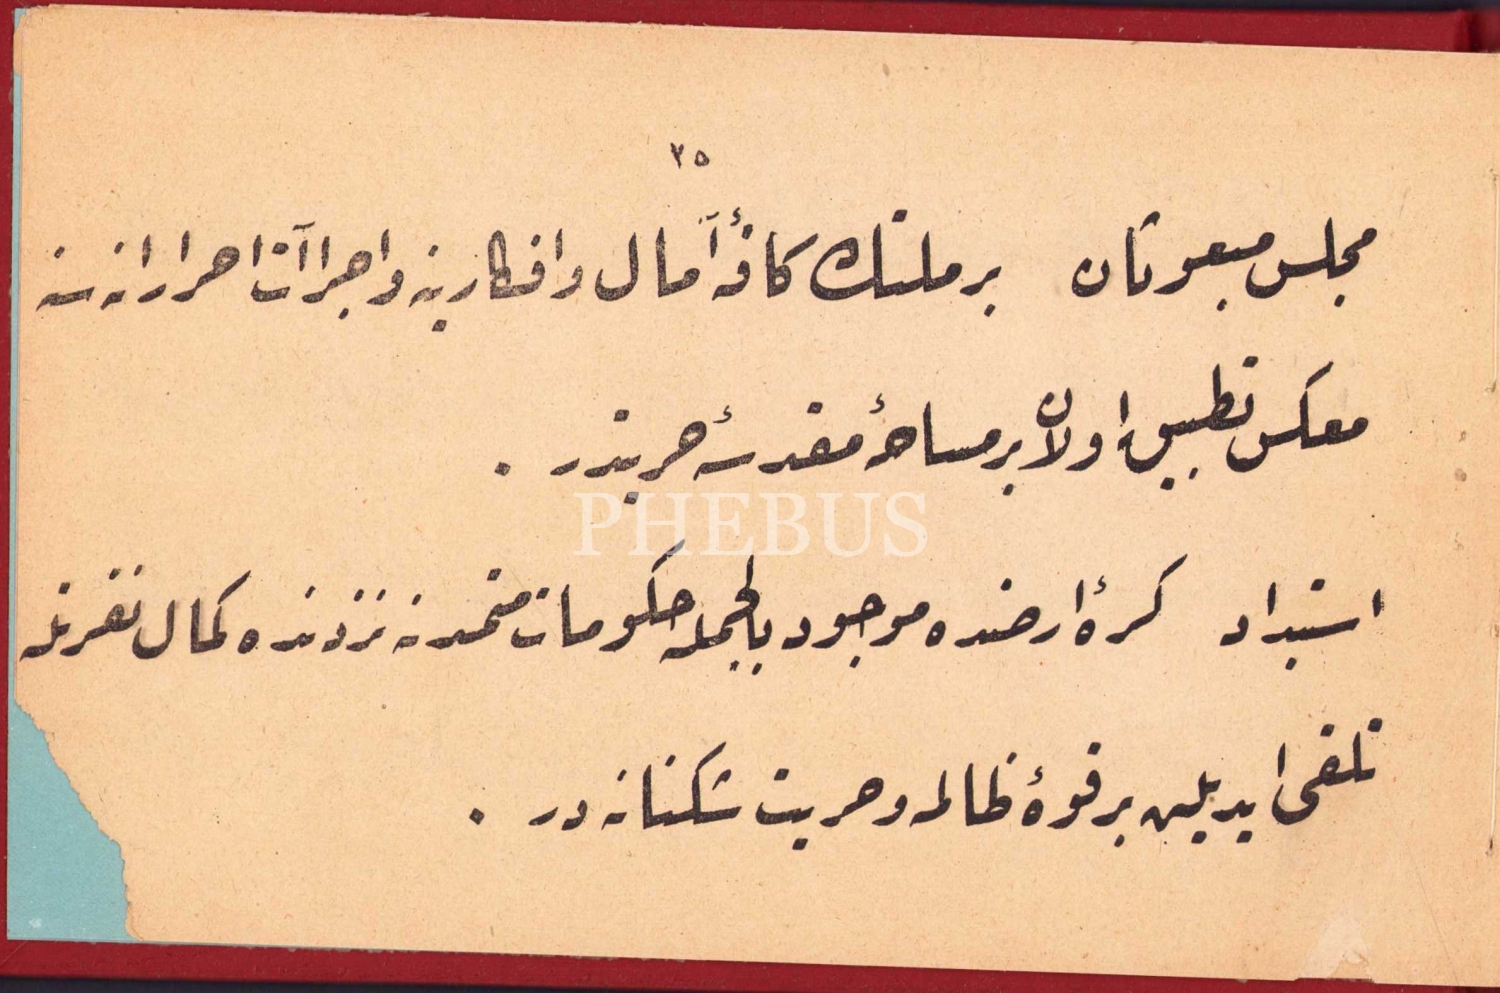 ٣٥
مجلس مبعوثان بر ملتك كافۀ آمال و افكارينه و اجراآت احرارانه سنه
معكس تطبيق اولان بر مساحۀ مقدسۀ حريتدر .
PHEBUS
استبداد كرۀ ارضده موجود بالجمله حكومات متمدنه نزدنده كمال نفرتله
تلقى ايديلن بر قوۀ ظالمه و حريت شكنانه در .